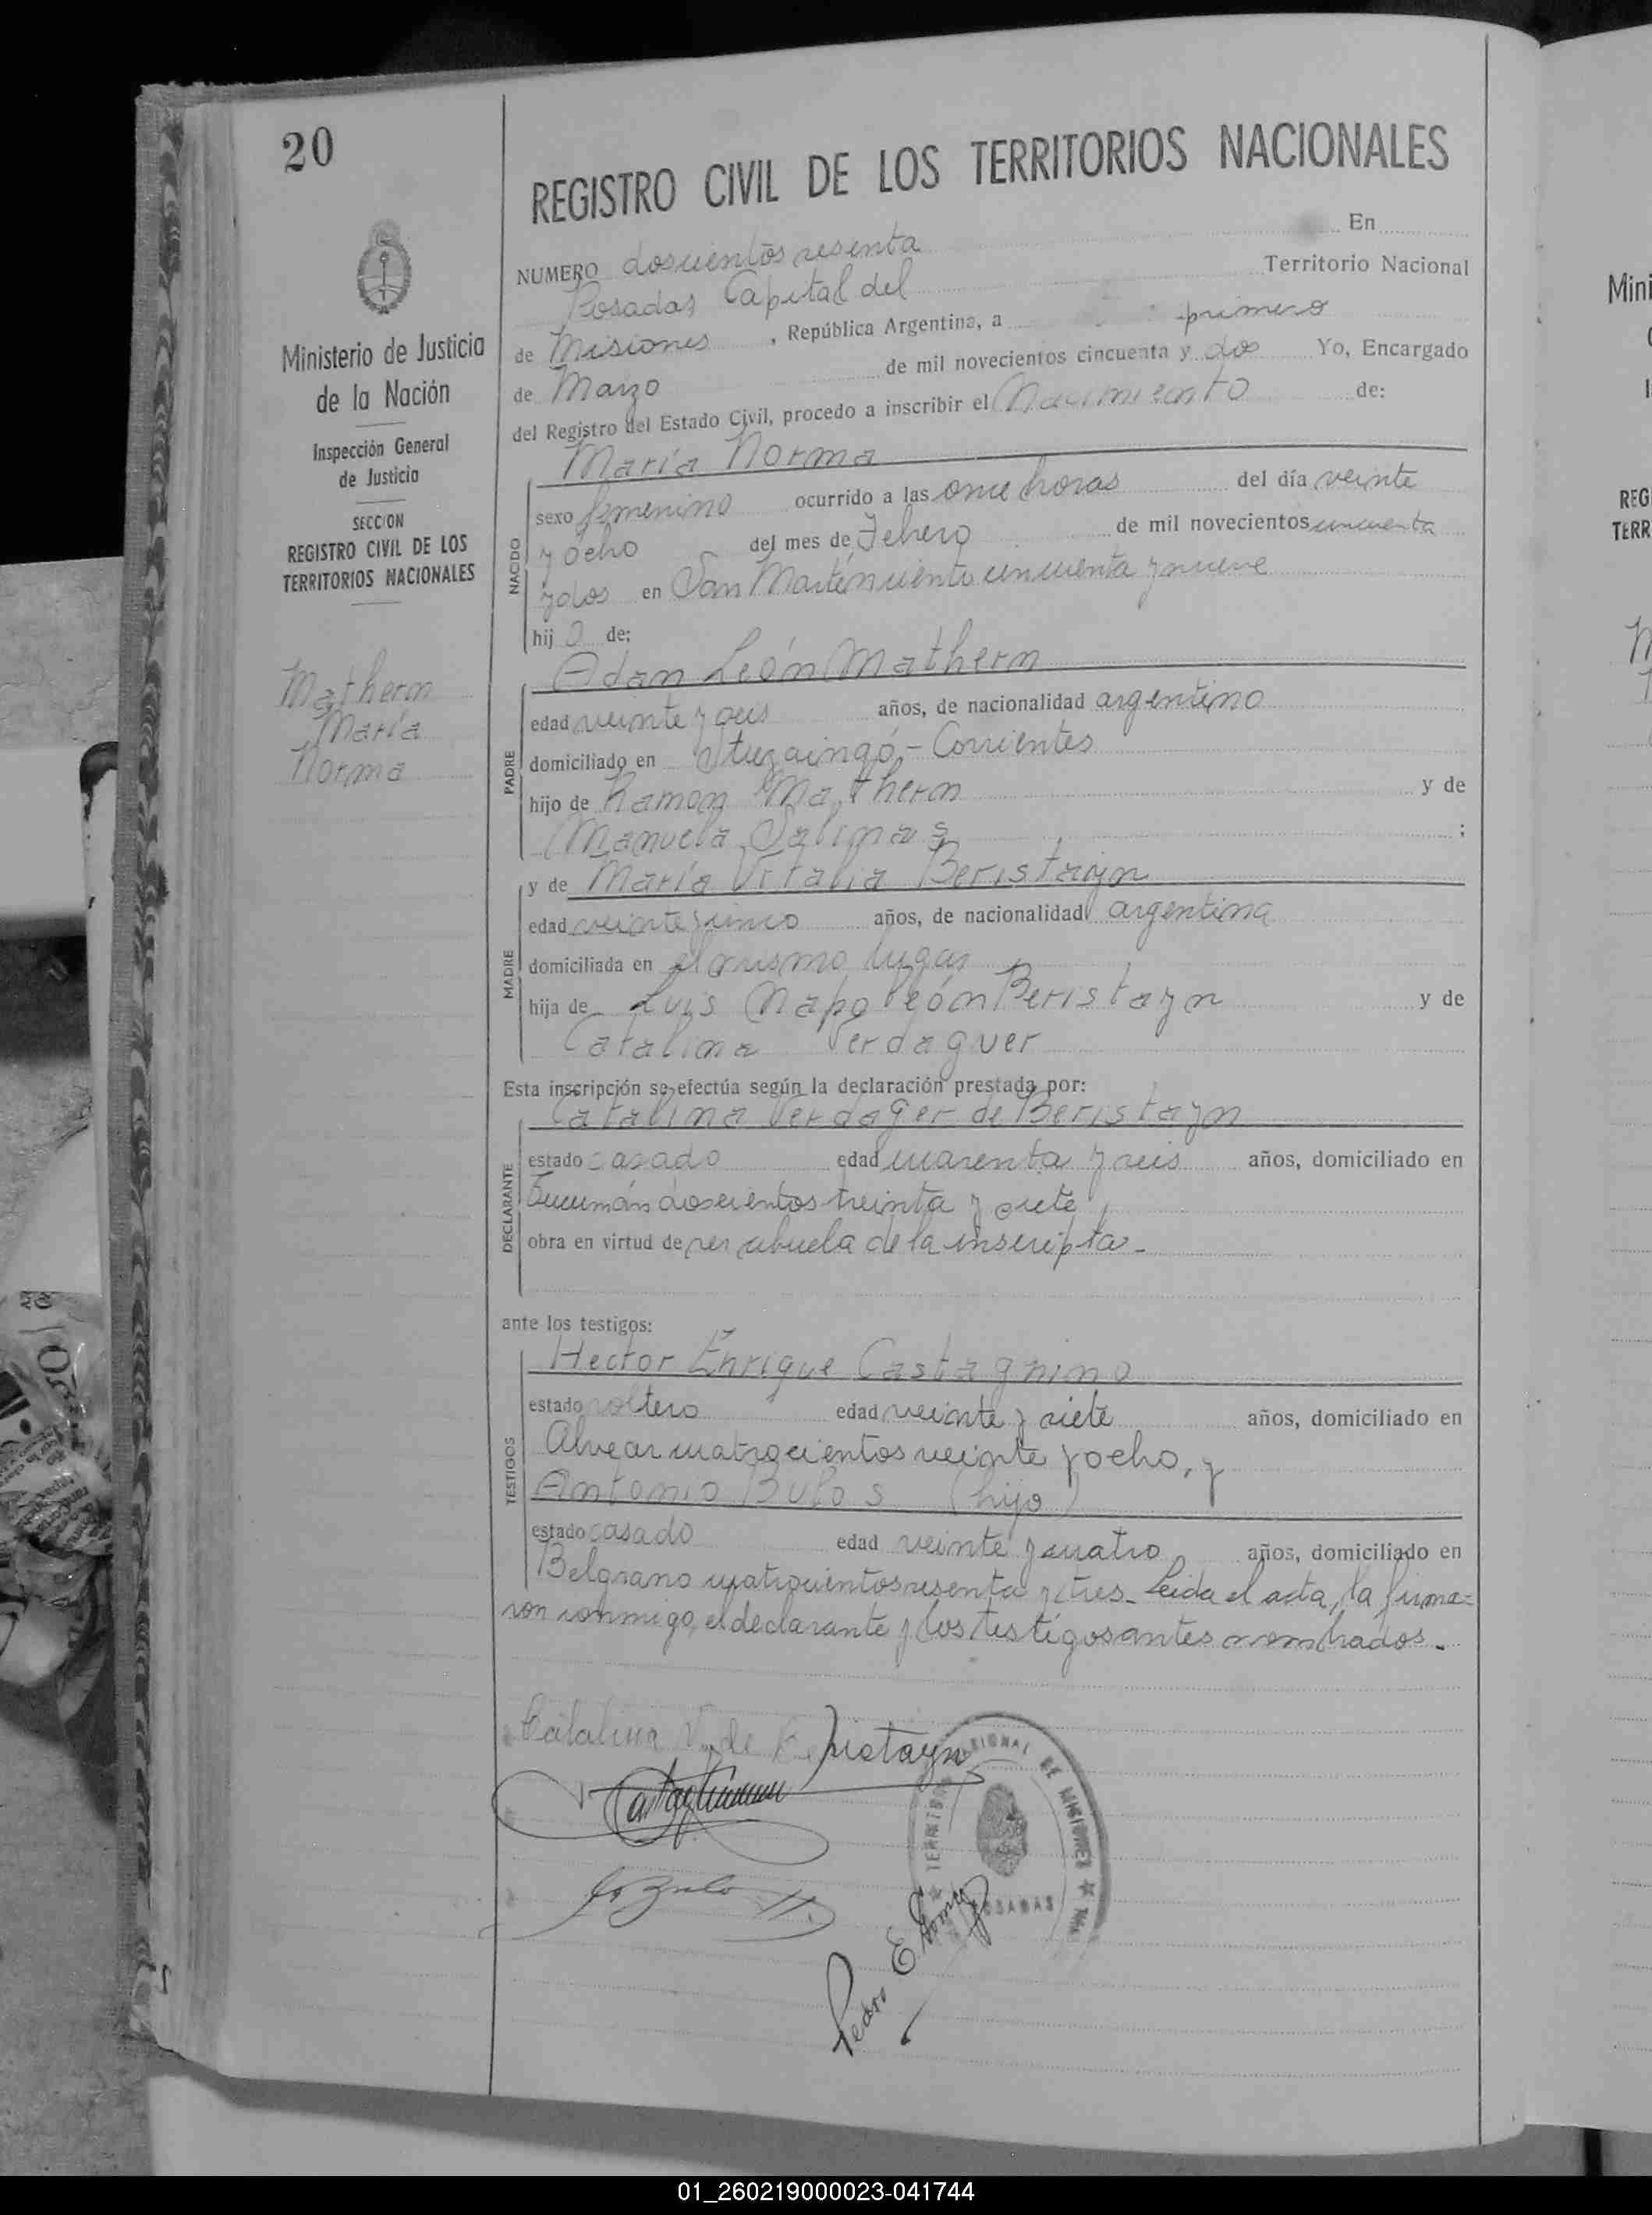 20
REGISTRO CIVIL DE LOS TERRITORIOS NACIONALES
Ministerio de Justicia
de la Nación
Inspección General
de Justicia
SECCION
REGISTRO CIVIL DE LOS
TERRITORIOS NACIONALES
Mathern
María
Norma
NUMERO doscientos sesenta En
Posadas Capital del Territorio Nacional
de Misiones, República Argentina, a primero
de Marzo de mil novecientos cincuenta y dos Yo, Encargado
del Registro del Estado Civil, procedo a inscribir el Nacimiento de:
María Norma
NACIDO
sexo femenino ocurrido a las once horas del día veinte
y ocho del mes de Febrero de mil novecientos cincuenta
y dos en San Martín ciento cincuenta y nueve
hij a de:
Adan León Mathern
PADRE
edad veinte y seis años, de nacionalidad argentino
domiciliado en Ituzaingó - Corrientes
hijo de Ramon Mathern y de
Manuela Salinas ;
y de María Vitalia Beristayn
MADRE
edad veinte y cinco años, de nacionalidad argentina
domiciliada en el mismo lugar
hija de Luis Napoleón Beristayn y de
Catalina Verdaguer
Esta inscripción se efectúa según la declaración prestada por:
Catalina Verdager de Beristayn
DECLARANTE
estado casado edad cuarenta y seis años, domiciliado en
Tucumán doscientos treinta y siete,
obra en virtud de ser abuela de la inscripta -
ante los testigos:
Hector Enrique Castagnino
TESTIGOS
estado soltero edad veinte y siete años, domiciliado en
Alvear cuatrocientos veinte y ocho, y
Antonio Bulos (hijo)
estado casado edad veinte y cuatro años, domiciliado en
Belgrano cuatrocientos sesenta y tres - Leida el acta, la firma=
ron conmigo, el declarante y los testigos antes nombrados -
Catalina V. de Beristayn
Pedro E Gomez
DE MISIONES
POSADAS
Mini
REG
TERR
01_260219000023-041744